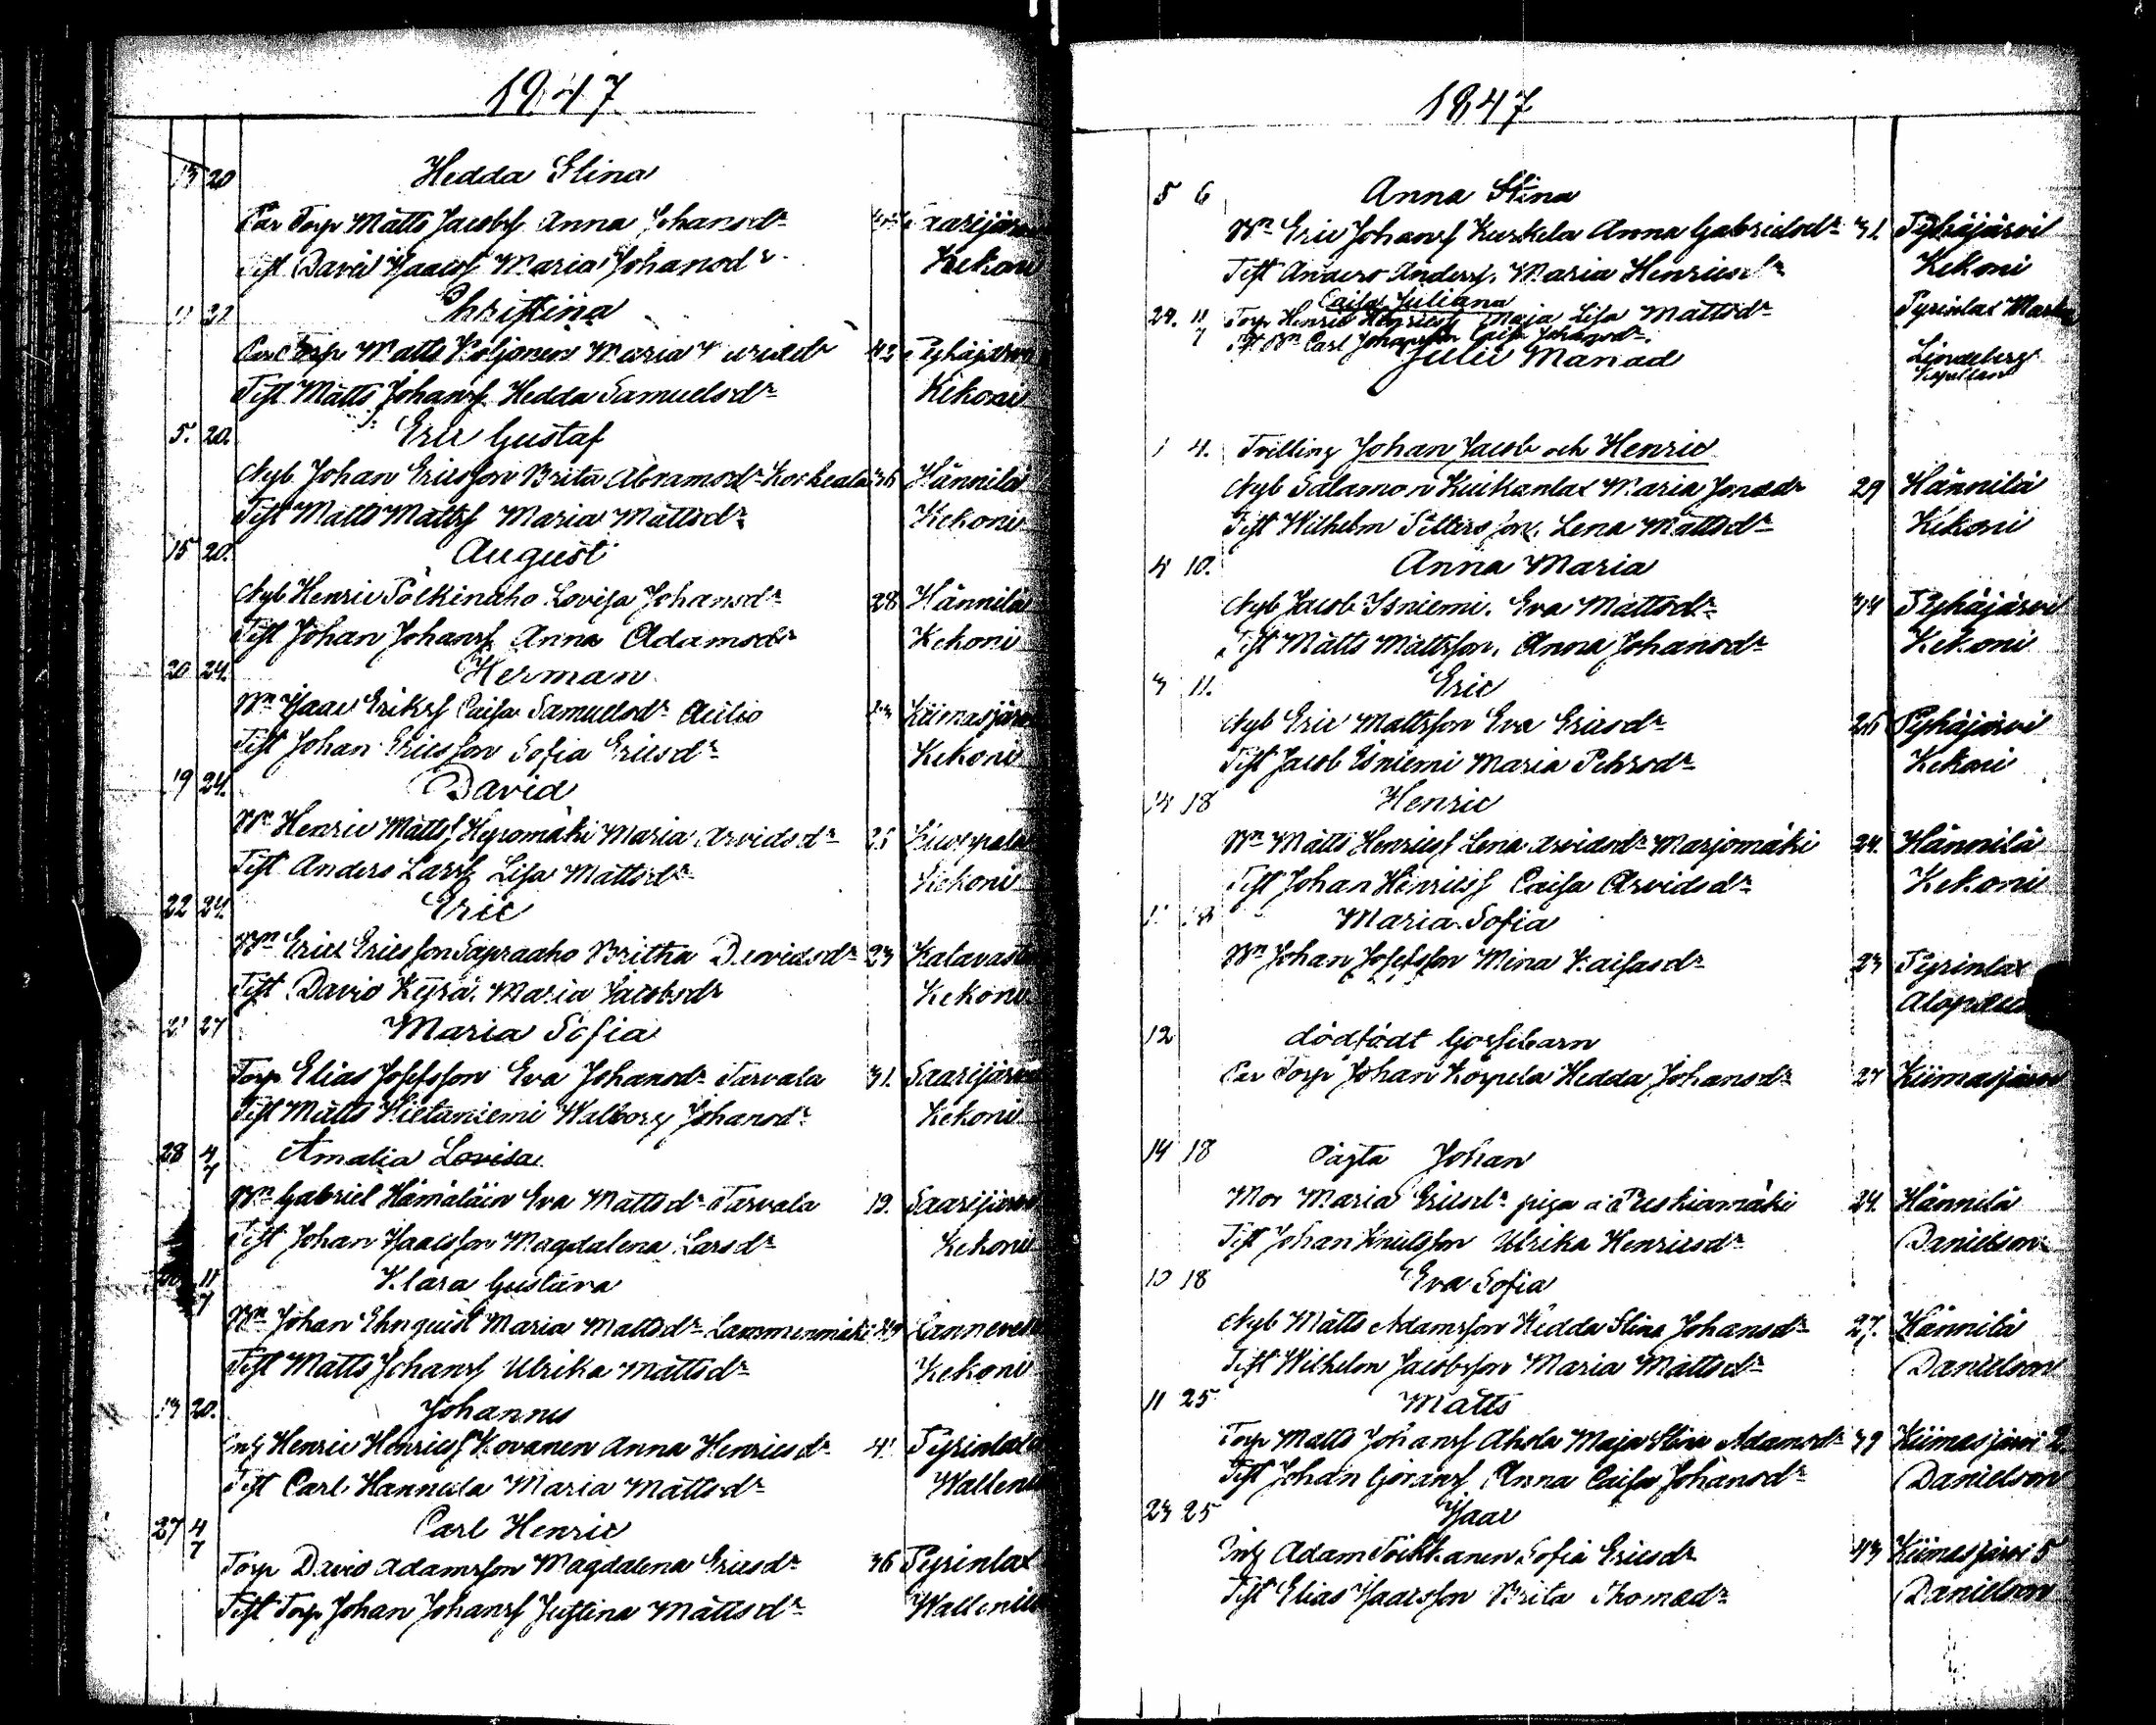 1847
13 20 Hedda Stina
Par Torp Matts Jacobsf Anna Johansdr Saarijärvi
Test David Isacsf Maria Johansdr Kekoni
Christina
Torp Matts Koljonen Maria 42 Pyhäjärvi
Test Matts Johansf Hedda Samuelsdr Kekoni
5. 20. Eric Gustaf
Nyb Johan Ericsson Brita Abramsdr Korkeala 36 Hännilä
Test Matts Mattsf Maria Mattsdr Kekoni
15 20. August
Nyb Henric Pölkinaho Lovisa Johansdr 28 Hännilä
Test Johan Johansf Anna Adamsdr Kekoni
20 24. Herman
Bn Isaac Eriksf Caisa Samuelsdr Aulio Kiimasjärvi
Test Johan Ericsson Sofia Ericsdr Kekoni
19 24. David
Bn Henric Mattsf Hyromäki Maria Arvidsdr Kuoppala
Test Anders Larsf Lisa Mattsdr Kekoni
22 24. Eric
Bn Erick Ericsson Sapraaho Britha Davidsdr 23 Kalavasi
Test David Kyrä. Maria Jacobsdr Kekoni
27 Maria Sofia
Torp Elias Josefsson Eva Johansdr Tarvala 31. Saarijärvi
Test Matts Hietaniemi Walborg Johansdr Kekoni
28 4/7 Amalia Lovisa
Bn Gabriel Hämäläin Eva Mattsdr Tarvala 19. Saarijärvi
Test Johan Isaacsson Magdalena Larsdr Kekoni
11/7 Klara Gustava
Bn Johan Ehnquist Maria Mattsdr Lammenmäki Kannevesi
Test Matts Johansf Ulrika Mattsdr Kekoni
13 20. Johannes
Inh Henric Henricsf Kovanen Anna Henricsdr 41 Pyrinlax
Test Carl Hannula Maria Mattsdr Wallenius
27 4/7 Carl Henric
Torp David Adamsson Magdalena Ericsdr 36 Pyrinlax
Test Torp Johan Johansf Justina Mattsdr Wallenius
1847
5 6 Anna Stina
Bn Eric Johansf Kuskela Anna Gabrielsdr 31. Pyhäjärvi
Test Anders Andersf. Maria Henricsdr Kekoni
Caisa Juliana
29. 11/7 Torp Henric Henricsf Maja Lisa Mattsdr Pyrinlax
Test Bn Carl Johansson Caisa Johansdr. Lindeberg
Julii Månad Kapellan
1 4. Tvilling Johan Jacob och Henric
Nyb Salamon Kuikanlax Maria Jonasdr 29 Hännilä
Test Wilhelm Pettersson. Lena Mattsdr Kekoni
4 10. Anna Maria
Nyb Jacob Isniemi. Eva Mattsdr 44 Pyhäjärvi
Test Matts Mattsson. Anna Johansdr Kekoni
3 11. Eric
Nyb Eric Mattsson Eva Ericsdr 26 Pyhäjärvi
Test Jacob Isniemi Maria Pehrsdr Kekoni
14 18 Henric
Bn Matts Henricsf Lena Arvidsdr Marjomäki 24. Hännilä
Test Johan Henricsf Caisa Arvidsdr Kekoni
18 Maria Sofia
Bn Johan Josefsson Mina Kaisasdr 23 Pyrinlax
Alopæus
12 dödfödt Gossebarn
Par Torp Johan Korpela Hedda Johansdr 27 Kiimasjärvi
14 18 oägta Johan
Mor Maria Ericsdr piga a Peskiamäki 24. Hännilä
Test Johan Knutsson Ulrika Henricsdr Danielson
10 18 Eva Sofia
Nyb Matts Adamsson Hedda Stina Johansdr 27. Hännilä
Test Wilhelm Jacobsson Maria Mattsdr Danielson
11 25 Matts
Torp Matts Johansf Ahola Maja Stina Adamsdr 39 Kiimasjärvi 2
Test Johan Göransf Anna Caisa Johansdr Danielson
23 25 Isaac
Inh Adam Poikkanen Sofia Ericsdr 43 Kiimasjärvi 5
Test Elias Isaacsson Brita Thomasdr Danielson